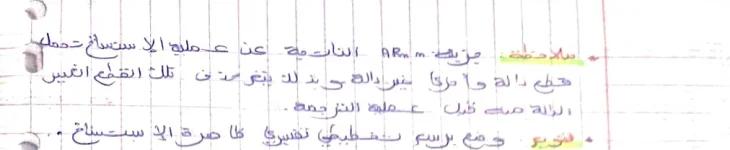 • ملاحظة: جزيئة ARNm الناتجة عن عملية الإستنساخ تحمل
قطع دالة وأخرى غير دالة وبذلك يتم حذف تلك القطع الغير
الدالة منه قبل عملية الترجمة.
• تقويم: وضح برسم تخطيطي تفسيري ظاهرة الإستنساخ.